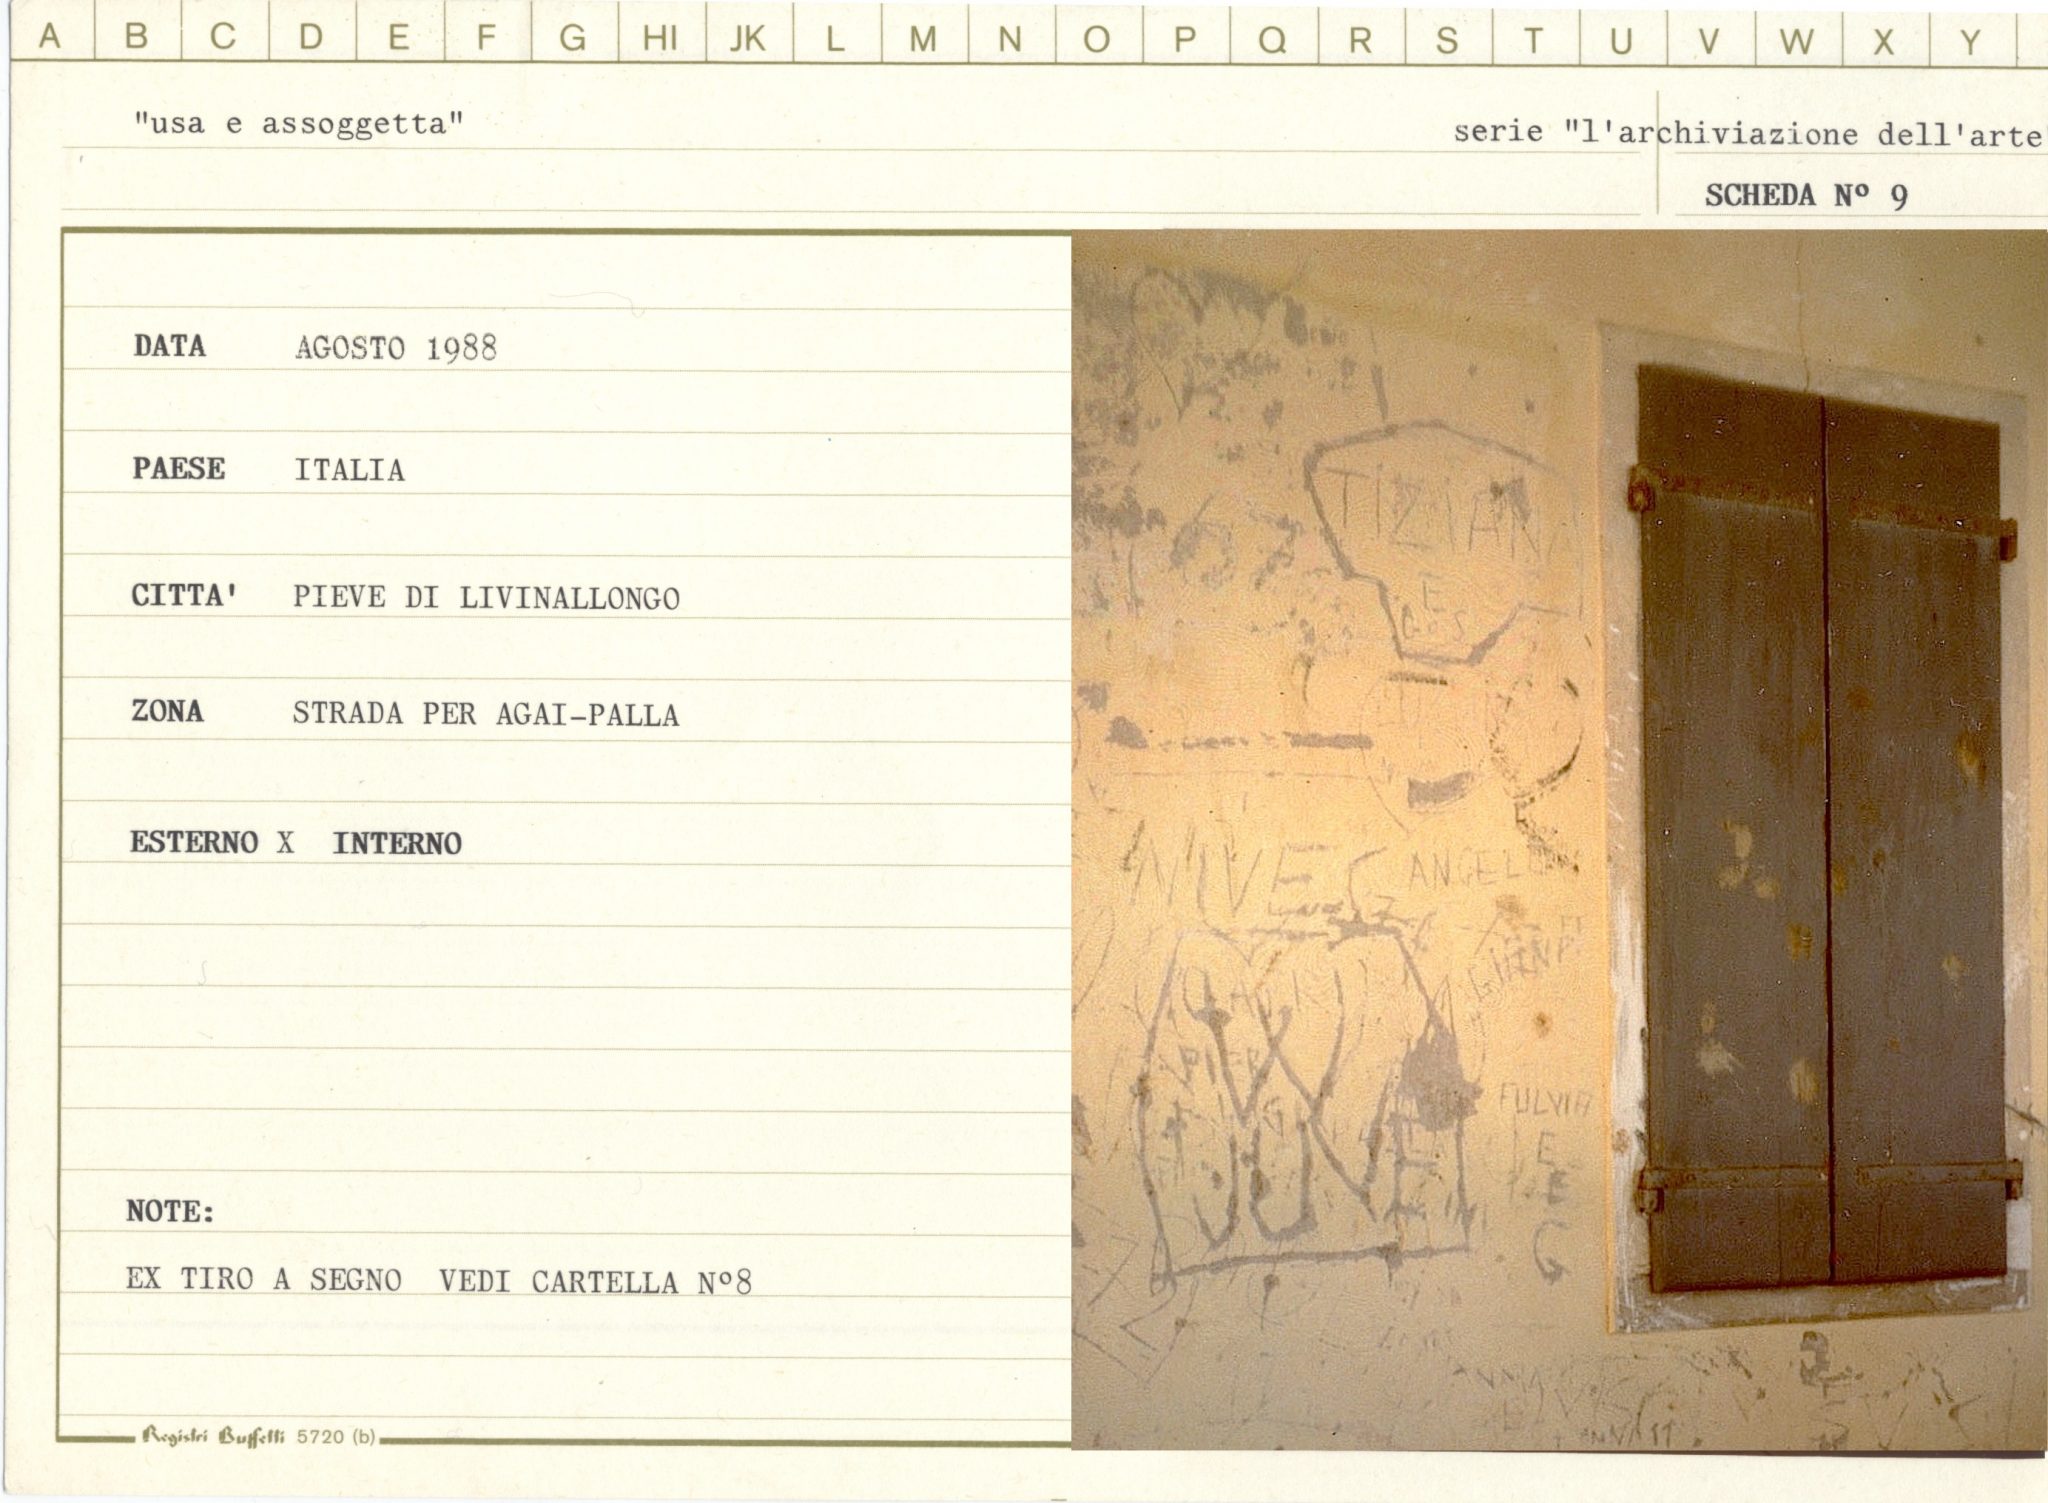 A B C D E F G HI JK L M N O P Q R S T U V W X Y
"usa e assoggetta"
serie "l'archiviazione dell'arte"
SCHEDA Nº 9
DATA AGOSTO 1988
PAESE ITALIA
CITTA' PIEVE DI LIVINALLONGO
ZONA STRADA PER AGAI-PALLA
ESTERNO X INTERNO
NOTE:
EX TIRO A SEGNO VEDI CARTELLA Nº8
Registri Buffetti 5720 (b)
TIZIANA
E
NIVES
ANGELO
W
FULVIA
E
G